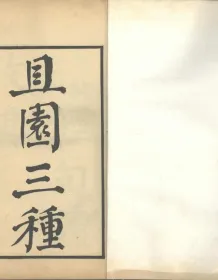 且園三種